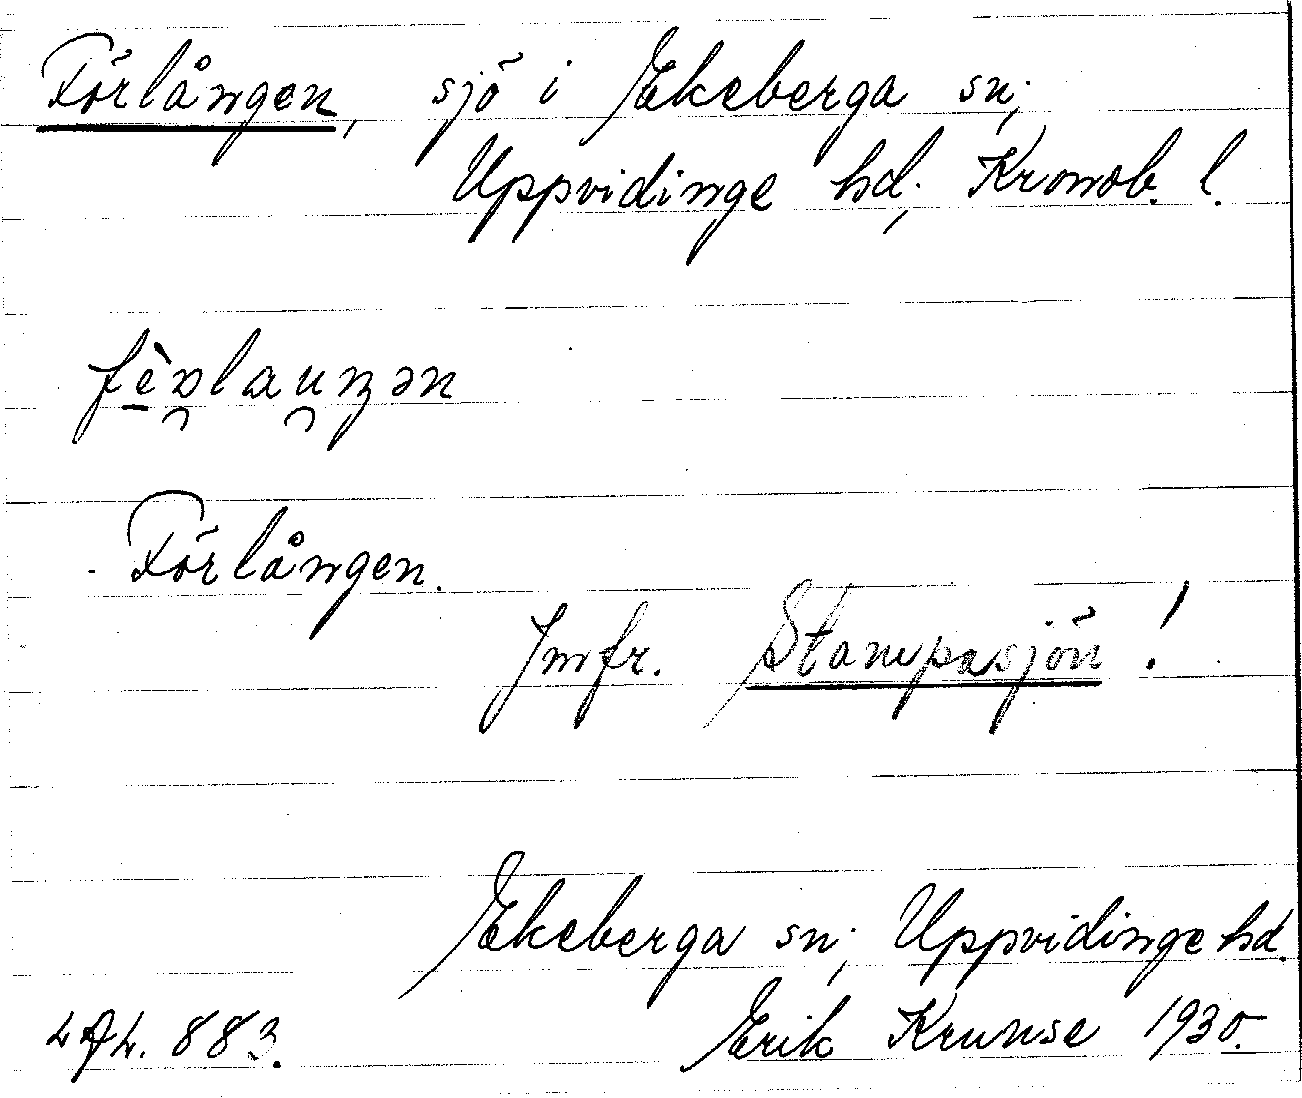 Förlången, sjö i Ekeberga sn;
Uppvidinge hd; Kronob. l.
Förlången.
Jmfr. Stampasjön!
Ekeberga sn; Uppvidinge hd.
883. Erik Krunse 1930.